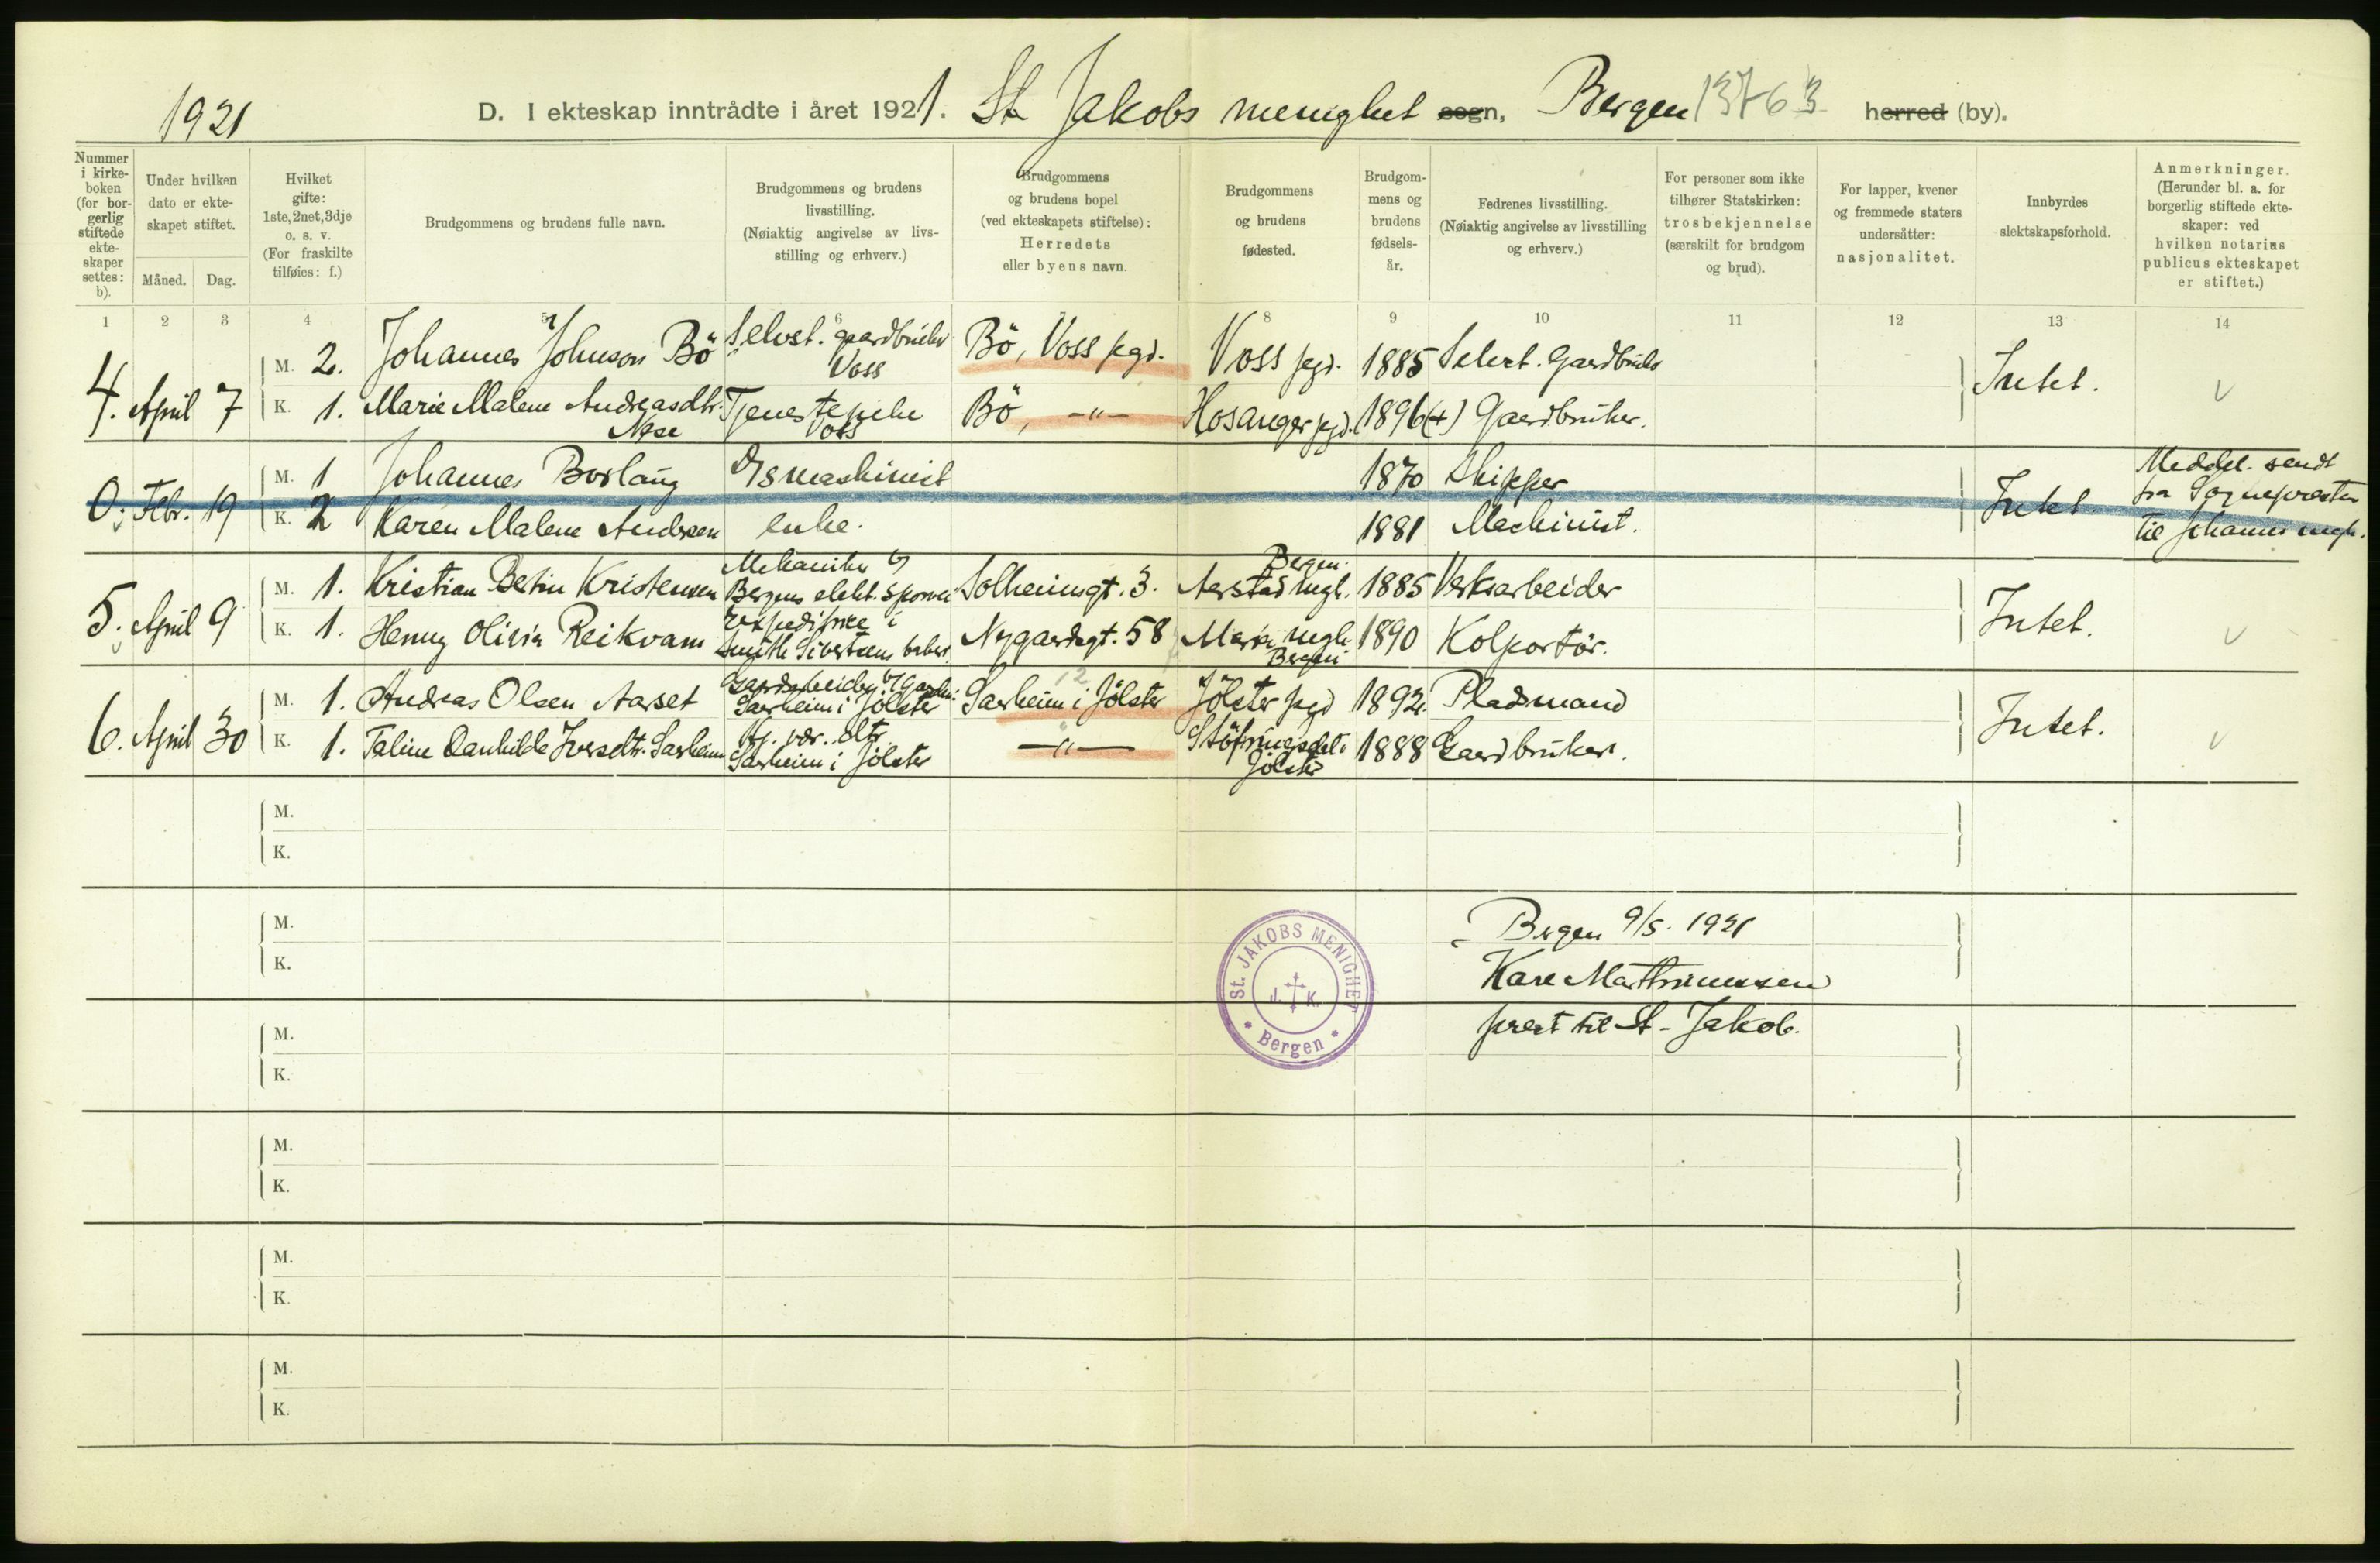 1921 D. I ekteskap inntrådte i året 1921. St Jakobs menighet sogn, Bergen 13763 herred (by).
Nummer i kirke-boken (for bor-gerlig stiftede ekte-skaper settes: b).
Under hvilken dato er ekte-skapet stiftet.
Måned. Dag.
Hvilket gifte: 1ste, 2net, 3dje o. s. v. (For fraskilte tilføies: f.)
Brudgommens og brudens fulle navn.
Brudgommens og brudens livsstilling. (Nøiaktig angivelse av livs-stilling og erhverv.)
Brudgommens og brudens bopel (ved ekteskapets stiftelse): Herredets eller byens navn.
Brudgommens og brudens fødested.
Brudgom-mens og brudens fødsels-år.
Fedrenes livsstilling. (Nøiaktig angivelse av livsstilling og erhverv.)
For personer som ikke tilhører Statskirken: trosbekjennelse (særskilt for brudgom og brud).
For lapper, kvener og fremmede staters undersåtter: nasjonalitet.
Innbyrdes slektskapsforhold.
Anmerkninger. (Herunder bl. a. for borgerlig stiftede ekte-skaper: ved hvilken notarius publicus ekteskapet er stiftet.)
1 2 3 4 5 6 7 8 9 10 11 12 13 14
4. April 7 M. 2. Johannes Johnson Bö Selvst. gaardbruker Voss Bö, Voss pgd. Voss pgd. 1885 Selvst. Gaardbruker Intet.
K. 1. Marie Malene Andreasdtr. Nese Tjenestepike Voss Bö, -"- Hosanger pgd. 1896 (+) Gaardbruker.
0. Febr. 19 M. 1 Johannes Borlaug Ismaskinist 1870 Skipper Intet Meddel. sendt fra Sognepresten til Johannes mgh.
K. 2 Karen Malene Andersen enke. 1881 Maskinist.
5. April 9 M. 1. Kristian Bertin Kristensen Mekaniker v/ Bergens elekt. sporvei Solheimsgt. 3. Bergen. Aarstad mgh. 1885 Verksarbeider Intet.
K. 1. Henny Olivia Reikvam i Smith Sivertsens Nygaardsgt. 58 Maria mgh. Bergen 1890 Kolportör.
12
6. April 30 M. 1. Andreas Olsen Aarset Saxheim i Jölster Saxheim i Jölster Jölster pgd 1892. Pladsmand Intet.
K. 1. Taline Danhilde Iversdtr. Saxheim Hj. vær. dtr. Saxheim i Jölster -"- Jölster 1888 Gaardbruker.
M.
K.
M.
K.
Bergen 9/5. 1921
Kare Mathiesen
prest til St. Jakob.
St. JAKOBS MENIGHET
J. K.
* Bergen *
M.
K.
M.
K.
M.
K.
M.
K.